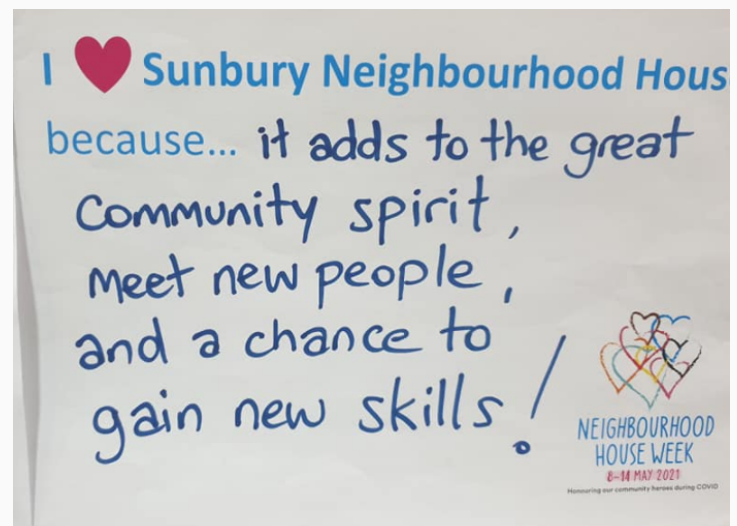 I ♥ Sunbury Neighbourhood Hous
because... it adds to the great
Community spirit,
Meet new people,
and a chance to
gain new skills!
NEIGHBOURHOOD
HOUSE WEEK
8–14 MAY 2021
Honouring our community heroes during COVID